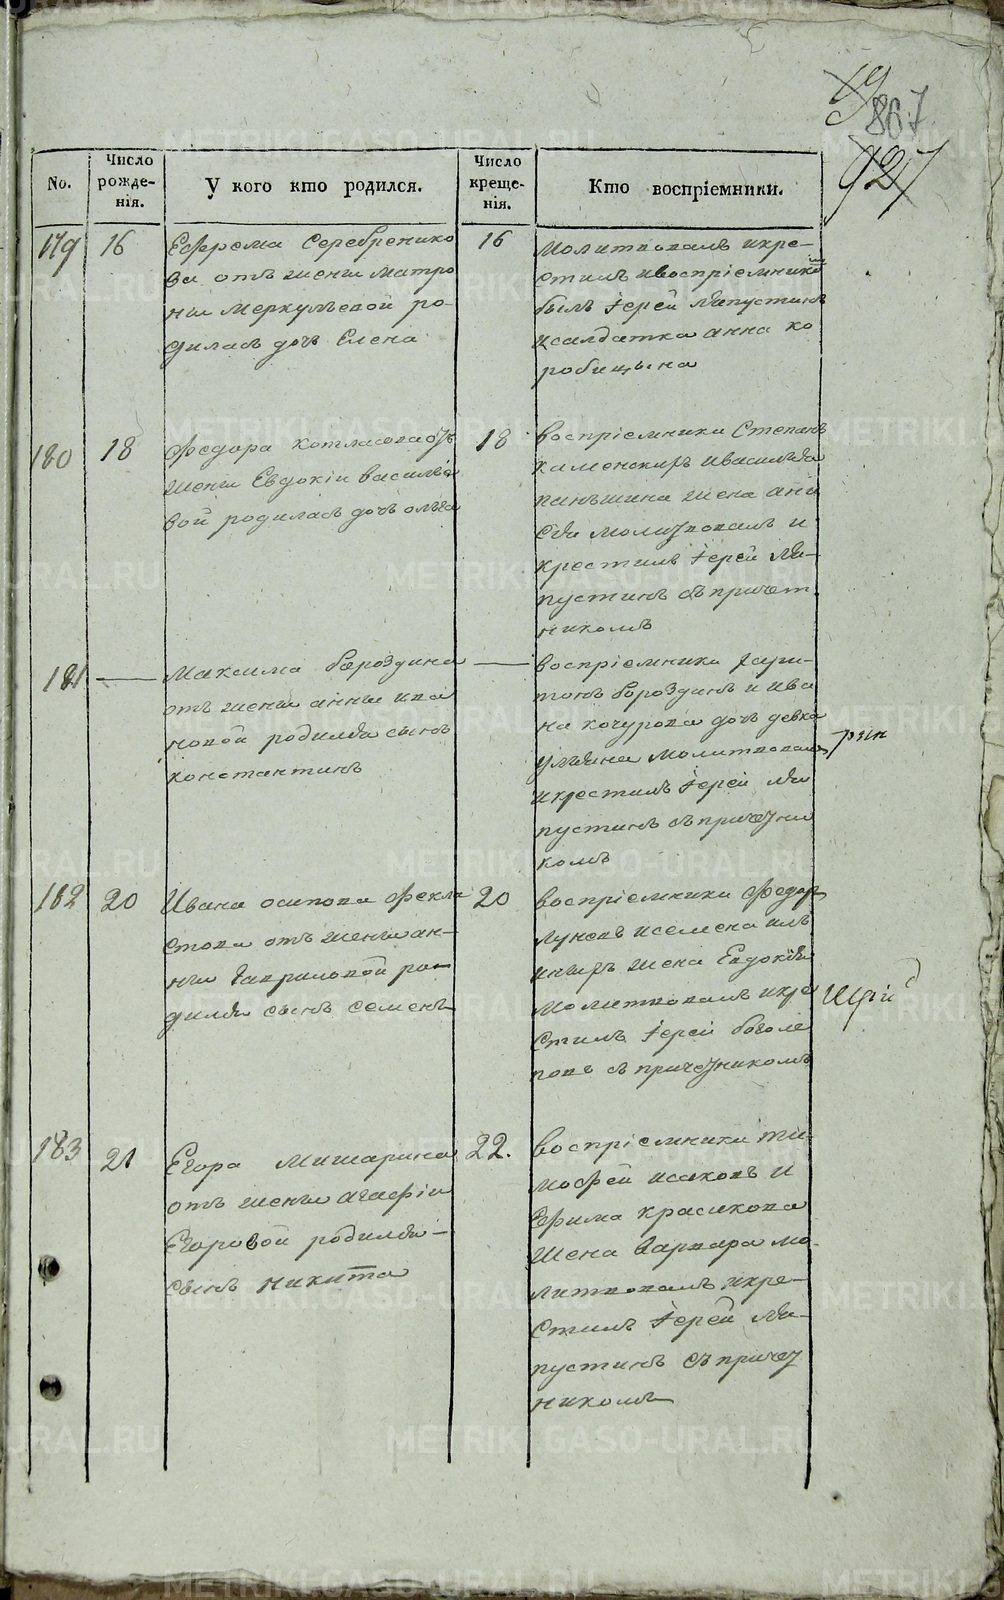 19
867
927
No.
Число рожде-нія.
У кого кто родился.
Число креще-нія.
Кто воспріемники.
179
16
Ефрема Серебренико
ва отъ жены Матро
ны Меркульевой ро-
дилась дочь Елена
16
молитвовалъ икре-
стилъ ивоспріемникомъ
былъ Іерей Ляпустинъ
исалдатка анна ко
робицына
180
18
Федора котласова отъ
жены Евдокіи василье
вой родилась дочь ольга
18
воспріемники Степанъ
каменскихъ ивасилья
паньшина жена ани
сья молитвовалъ и
крестилъ Іерей Ля-
пустинъ съ причет
никомъ
181
Максима бороздина
отъ жены анны ива
новой родился сынъ
константинъ
воспріемники хари-
тонъ бороздинъ и ива
на кочурова дочь девка
ульяна молитвовалъ
икрестилъ Іерей Ля
пустинъ съ причетни
комъ
182
20
Ивана осипова Фекли
стова отъ жены ан-
ны гавриловой ро-
дился сынъ семенъ
20
воспріемники Федоръ
луневъ исемена
жена Евдокія
молитвовалъ икре
стилъ Іерей боголе
повъ съ причетникомъ
183
21
Егора Мишарина
отъ жены агафіи
Егоровой родился
сынъ никита
22.
воспріемники ти-
мофей исаковъ и
Ефима красикова
жена варвара мо-
литвовалъ икре-
стилъ Іерей Ля-
пустинъ съ причет
никомъ
METRIKI.GASO-URAL.RU